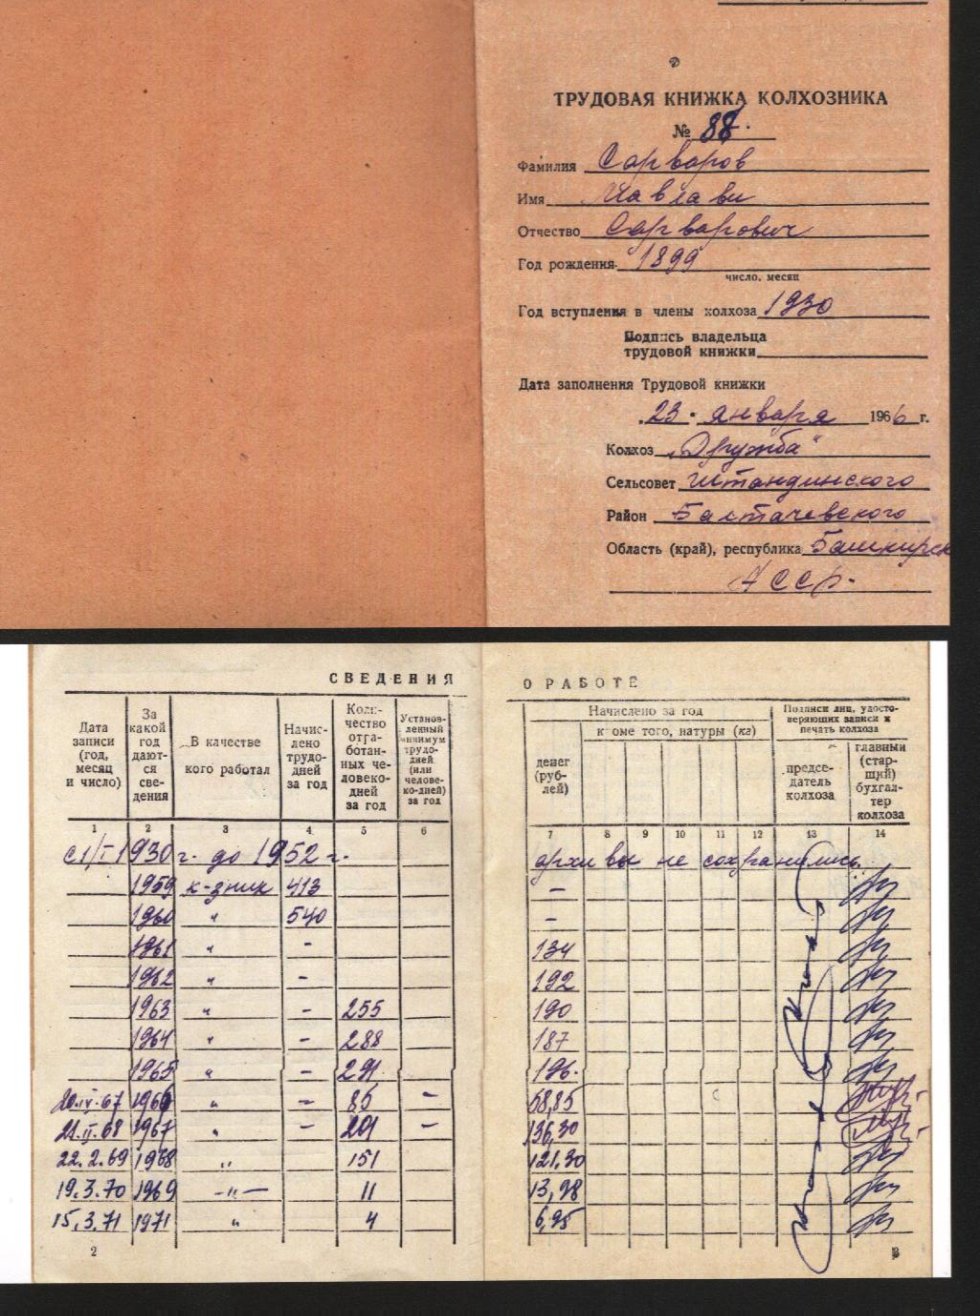 ТРУДОВАЯ КНИЖКА КОЛХОЗНИКА
№ 88.
Фамилия Сарваров
Имя
Отчество Сарварович
Год рождения 1899
число, месяц
Год вступления в члены колхоза 1930
Подпись владельца
трудовой книжки
Дата заполнения Трудовой книжки
23 января 1966 г.
Колхоз „Дружба“
Сельсовет Иштандинского
Район Балтачевского
Область (край), республика Башкирск
АССР.
СВЕДЕНИЯ О РАБОТЕ
Дата записи (год, месяц и число)
За какой год даются сведения
В качестве кого работал
Начислено трудодней за год
Количество отработанных человеко-дней за год
Установленный минимум трудодней (или человеко-дней) за год
Начислено за год
денег (рублей)
кроме того, натуры (кг)
Подписи лиц, удостоверяющих записи и печать колхоза
председатель колхоза
главный (старший) бухгалтер колхоза
1 2 3 4 5 6 7 8 9 10 11 12 13 14
с 1/I 1930 г. до 1952 г. архивы не сохранились.
1959 к-зник 413 –
1960 " 540 –
1961 " – 134
1962 " – 192
1963 " – 255 190
1964 " – 288 187
1965 " – 291 196.
20.IV.67 1966 " – 85 – 58,85
21.II.68 1967 " – 201 – 136,30
22.2.69 1968 " 151 121,30
19.3.70 1969 –"– 11 13,98
15.3.71 1971 " 4 6,95
2
3